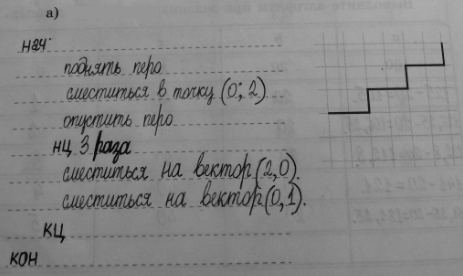 а)
нач
поднять перо
сместиться в точку (0; 2)
опустить перо
нц 3 раза
сместиться на вектор (2,0).
сместиться на вектор (0,1).
кц
кон